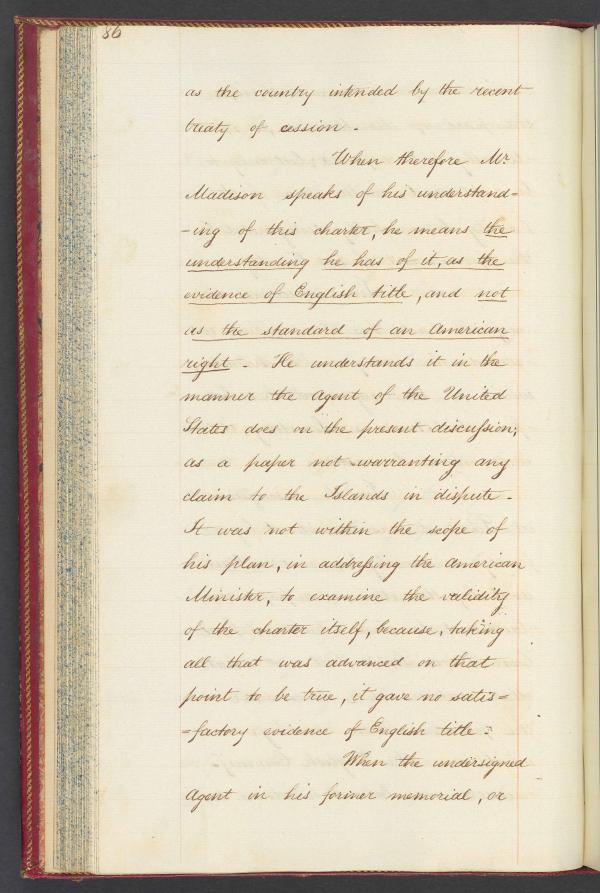 86
as the country intended by the recent
treaty of cession -
When therefore Mr.
Madison speaks of his understand=
-ing of this charter, he means the
understanding he has of it, as the
evidence of English title, and not
as the standard of an American
right - He understands it in the
manner the Agent of the United
States does on the present discuſsion;
as a paper not warranting any
claim to the Islands in dispute -
It was not within the scope of
his plan, in addreſsing the American
Minister, to examine the validity
of the charter itself, because, taking
all that was advanced on that
point to be true, it gave no satis=
=factory evidence of English title -
When the undersigned
Agent in his former memorial, or